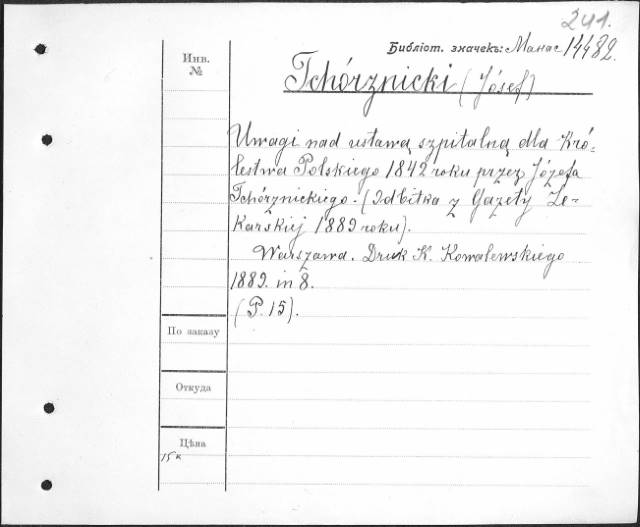 241.
Библіот. значекъ: Манас 14482.
Инв. №
Tchórznicki (Jósef)
Uwagi nad ustawą szpitalną dla Kró-
lestwa Polskiego 1842 roku przez Józefa
Tchórznickiego. (Odbitka z Gazety Le-
karskiej 1889 roku).
Warszawa. Druk K. Kowalewskiego
1889. in 8.
(P. 15).
По заказу
Откуда
Цѣна
15 к